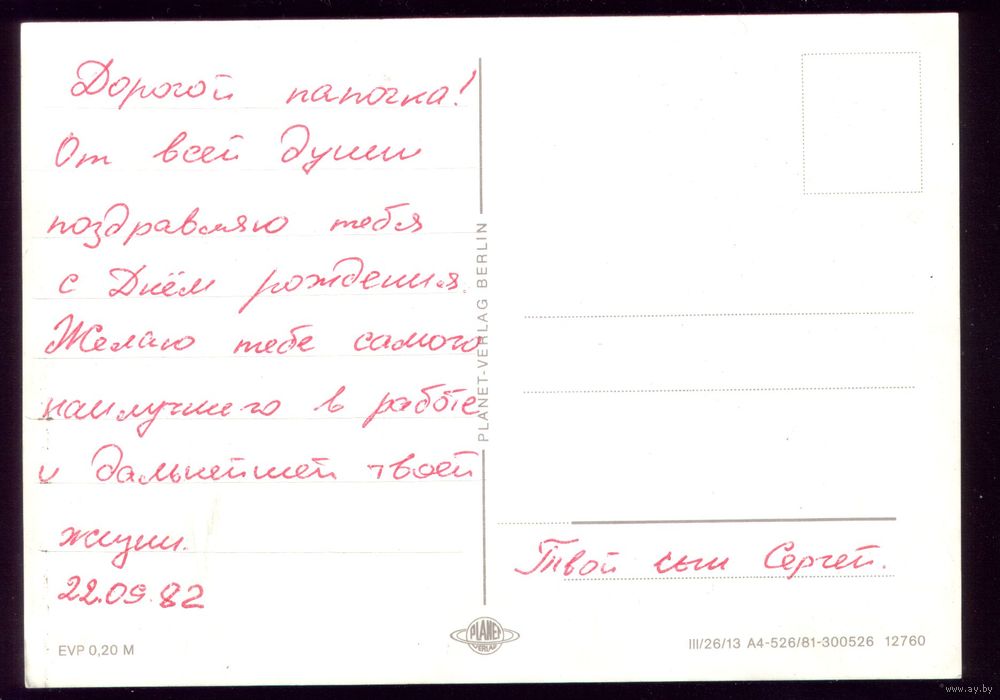 Дорогой папочка!
От всей души
поздравляю тебя
с Днём рождения.
Желаю тебе самого
наилучшего в работе
и дальнейшей твоей
жизни.
22.09.82
Твой сын Сергей.
PLANET-VERLAG BERLIN
EVP 0,20 M
PLANET
VERLAG
III/26/13 A4-526/81-300526 12760
www.ay.by